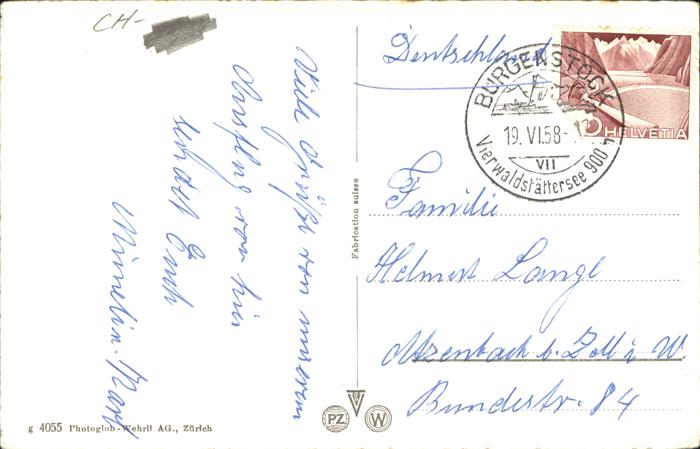 CH-
Viele Grüße von unserem
Ausflug von hier
sendet Euch
Karl
Fabrication suisse
g 4055 Photoglob-Wehrli AG., Zürich
PZ
W
Deutschland
BÜRGENSTOCK
19. VI. 58-
VII
Vierwaldstättersee 900 m
HELVETIA
Familie
Helmut Lange
Atzenbach b. Zell i. W.
Bundestr. 84